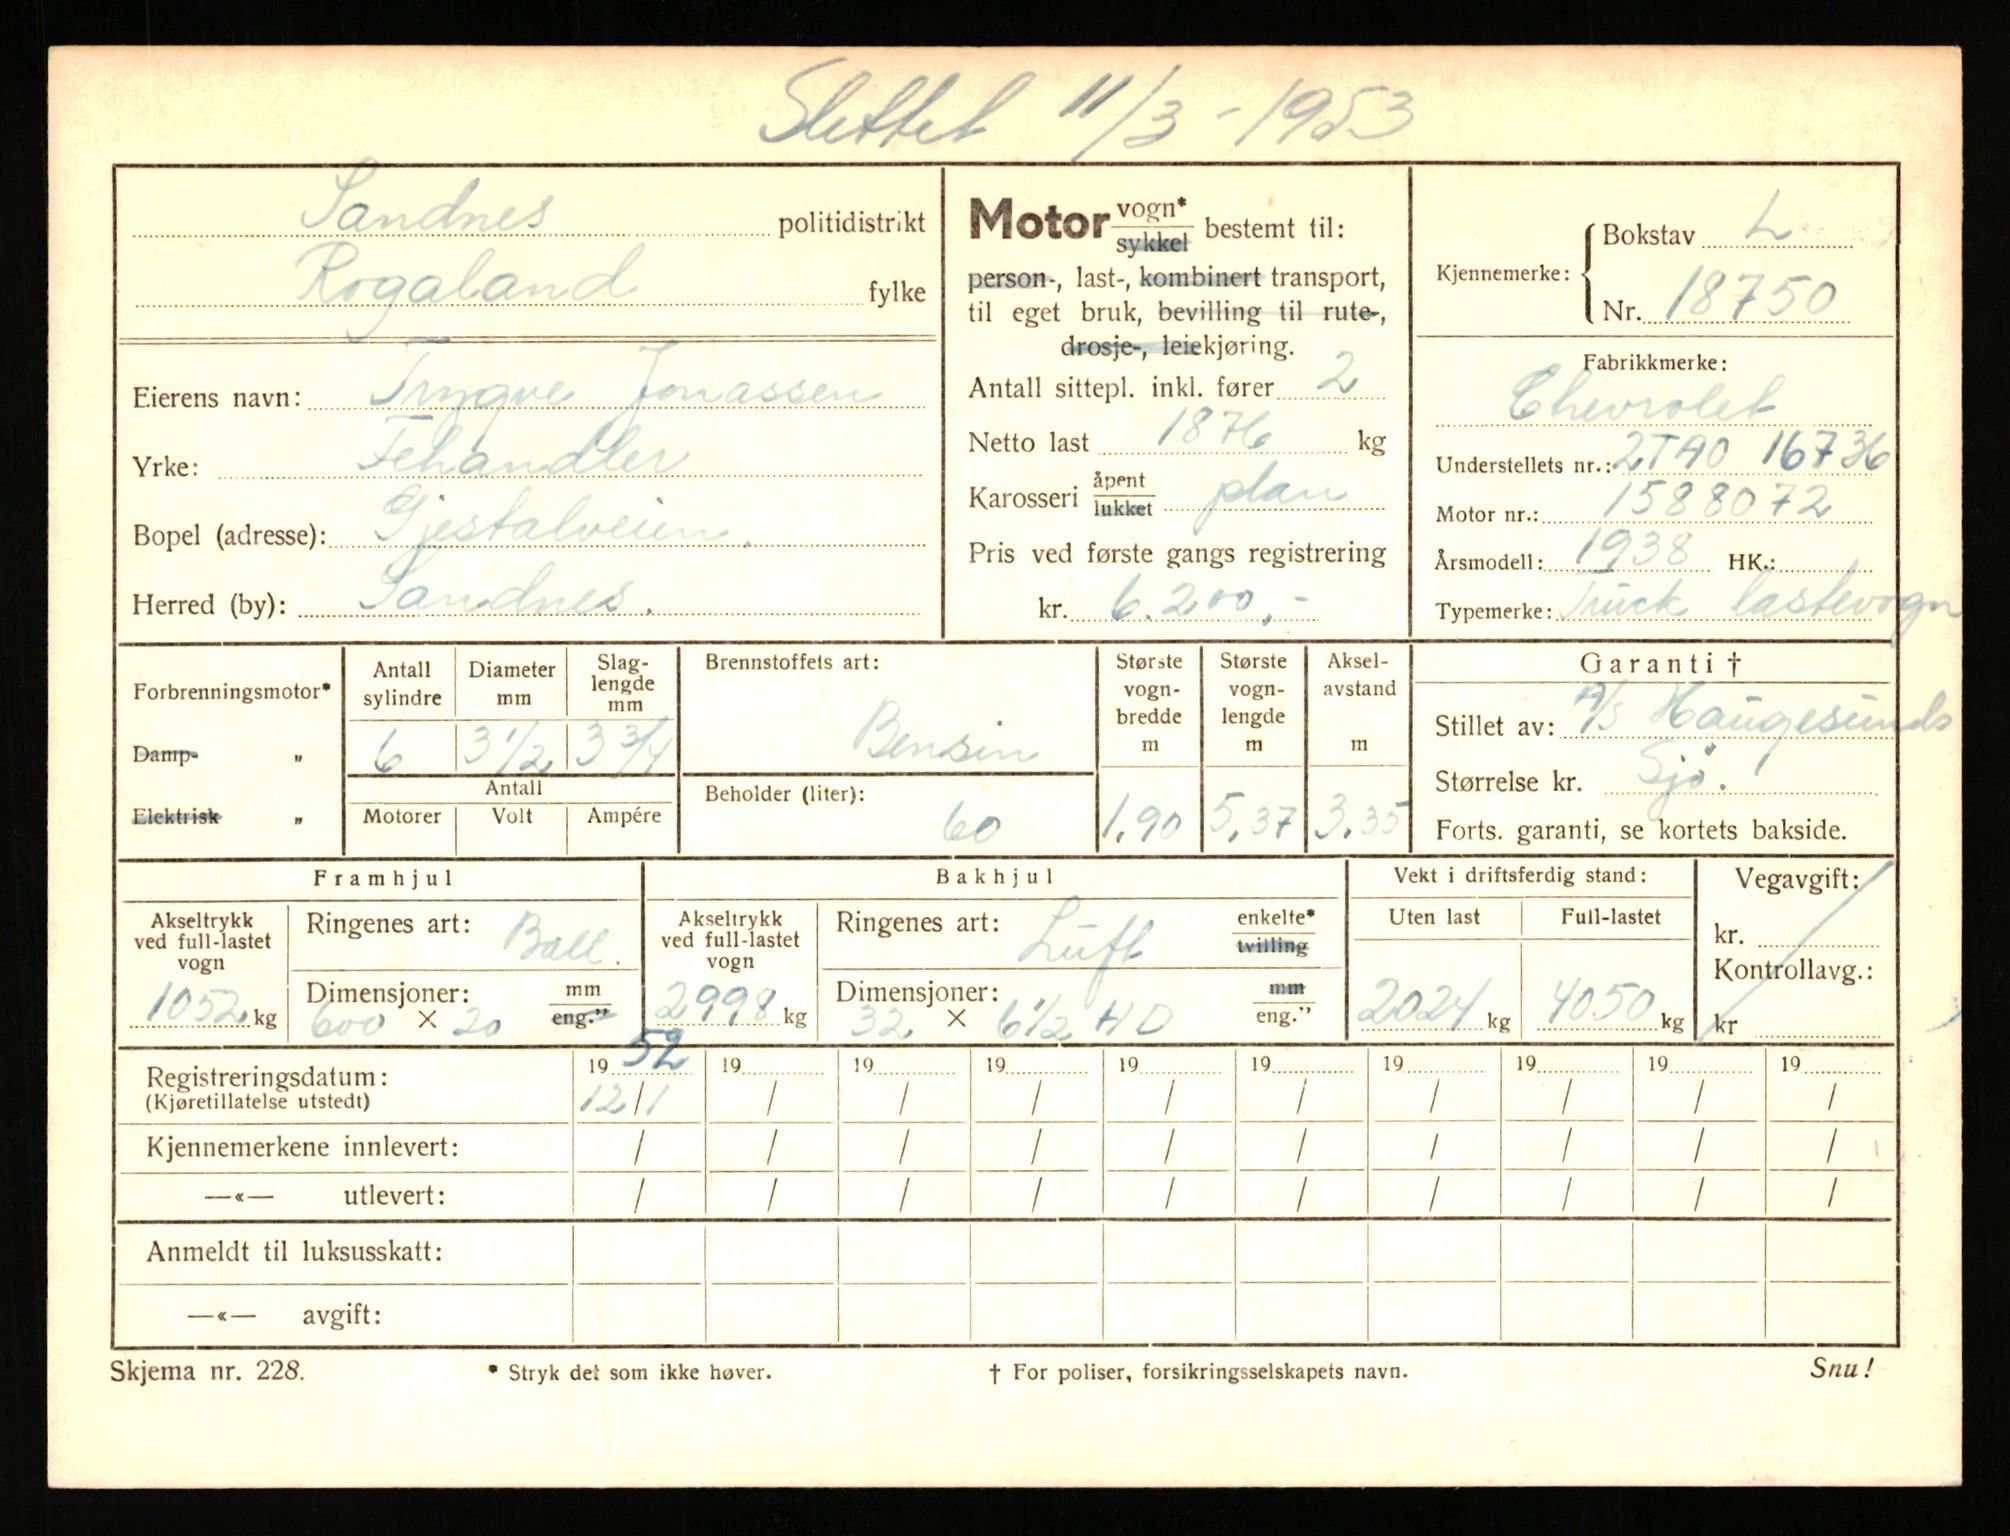 Slettet 11/3-1953
Sandnes politidistrikt
Rogaland fylke
Eierens navn: Trygve Jonassen
Yrke: Fehandler
Bopel (adresse): Gjestalveien.
Herred (by): Sandnes.
Motor vogn* sykkel bestemt til:
person-, last-, kombinert transport,
til eget bruk, bevilling til rute-,
drosje-, leiekjøring.
Antall sittepl. inkl. fører 2
Netto last 1876 kg
Karosseri åpent lukket plan
Pris ved første gangs registrering
kr. 6.200,-
Kjennemerke: Bokstav L
Nr. 18750
Fabrikkmerke:
Chevrolet
Understellets nr.: 2TA0 16736
Motor nr.: 1588072
Årsmodell: 1938 HK.:
Typemerke: Truck lastevogn
Forbrenningsmotor*
Damp- "
Elektrisk "
Antall sylindre Diameter mm Slag-lengde mm
6 3 1/2 3 3/4
Antall
Motorer Volt Ampére
Brennstoffets art:
Bensin
Beholder (liter):
60
Største vogn-bredde m Største vogn-lengde m Aksel-avstand m
1.90 5.37 3.35
Garanti †
Stillet av: A/S Haugesunds
Sjø.
Størrelse kr.
Forts. garanti, se kortets bakside.
Framhjul
Akseltrykk ved full-lastet vogn
1052 kg
Ringenes art: Ball.
Dimensjoner: mm eng."
600 × 20
Bakhjul
Akseltrykk ved full-lastet vogn
2998 kg
Ringenes art: Luft enkelte* tvilling
Dimensjoner: mm eng."
32 × 6 1/2 HD
Vekt i driftsferdig stand:
Uten last Full-lastet
2024 kg 4050 kg
Vegavgift:
kr.
Kontrollavg.:
kr
Registreringsdatum: 1952 19 19 19 19 19 19 19 19 19
(Kjøretillatelse utstedt) 12/1 / / / / / / / / /
Kjennemerkene innlevert: / / / / / / / / / /
—«— utlevert: / / / / / / / / / /
Anmeldt til luksusskatt:
—«— avgift:
Skjema nr. 228. * Stryk det som ikke høver. † For poliser, forsikringsselskapets navn. Snu!